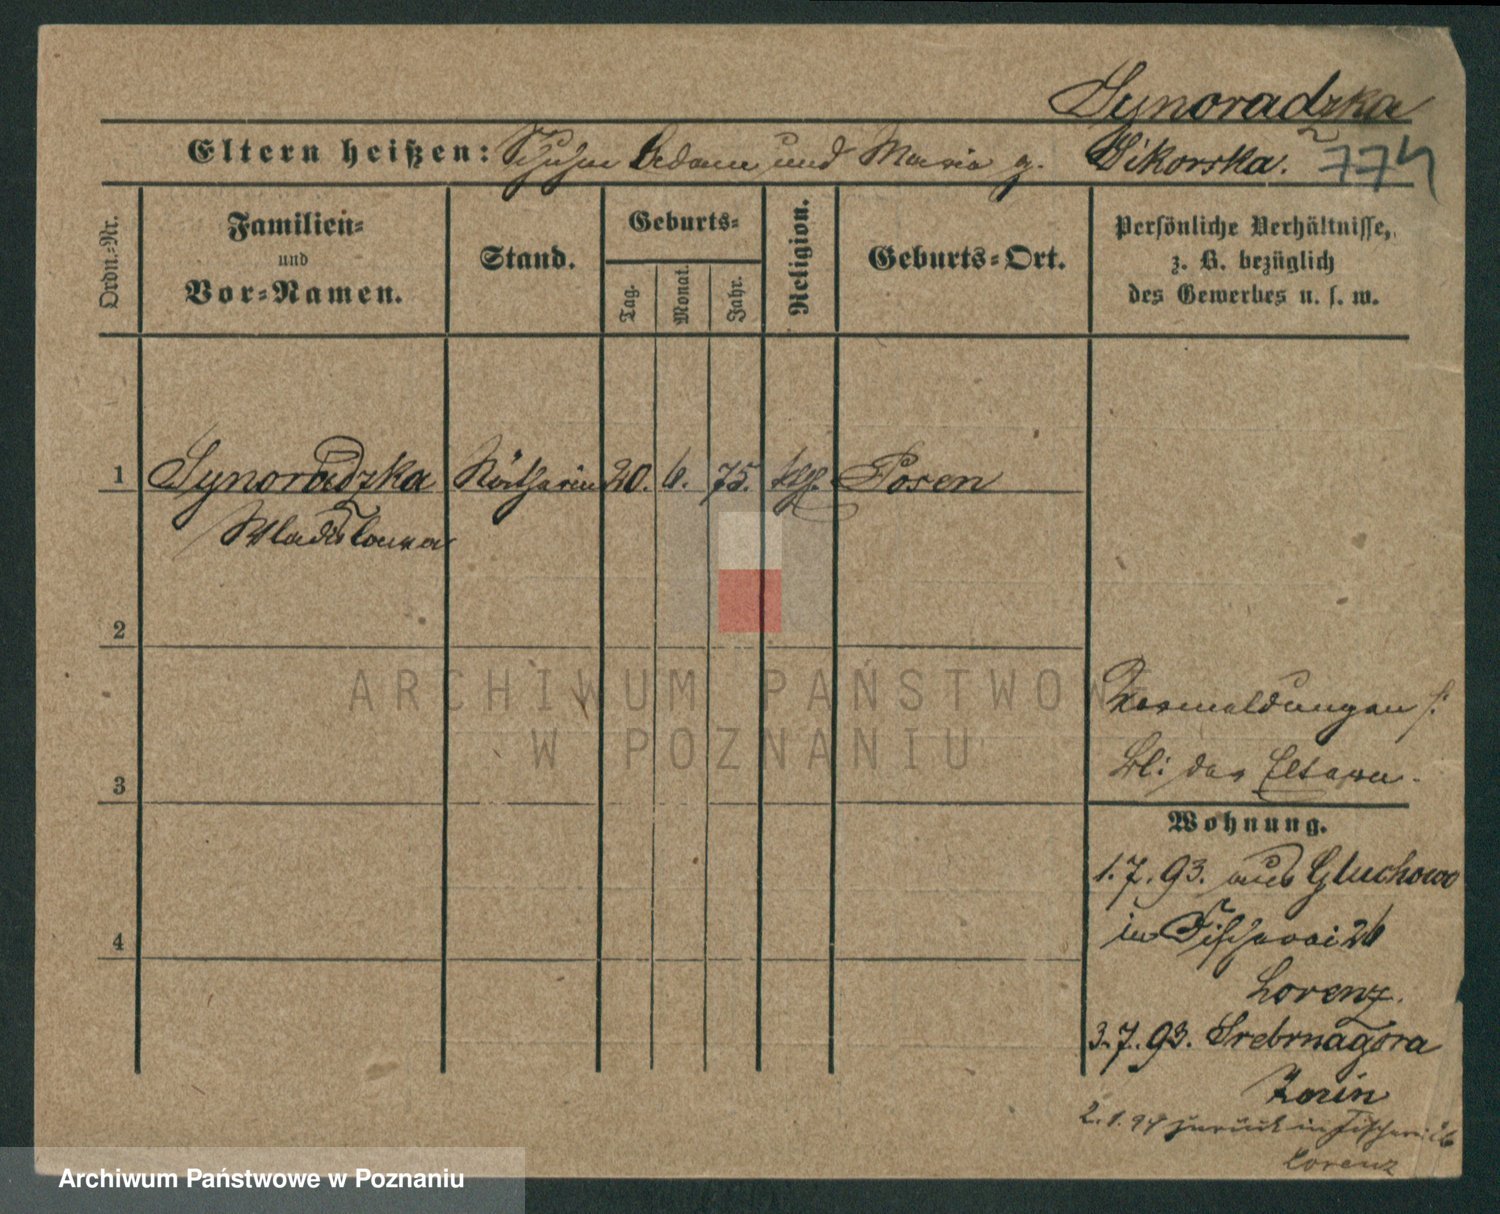 Synoradzka
Eltern heißen: Tischler Adam und Maria g. Sikorska.
774
Ordn.-Nr.
Familien-
und
Vor-Namen.
Stand.
Geburts-
Tag.
Monat.
Jahr.
Religion.
Geburts-Ort.
Persönliche Verhältnisse,
z. B. bezüglich
des Gewerbes u. s. w.
1 Synoradzka Nätherin 20. 6. 75. kth. Posen
Wladislawa
2
3
4
ARCHIWUM PAŃSTWOWE
W POZNANIU
Vermeldungen s.
bei den Eltern.
Wohnung.
1.7.93. aus Gluchowo
in Fischerei 26
Lorenz.
3.7.93. Srebrnagora
Znin
2.1.94 zurück in Fischerei 26
Lorenz
Archiwum Państwowe w Poznaniu